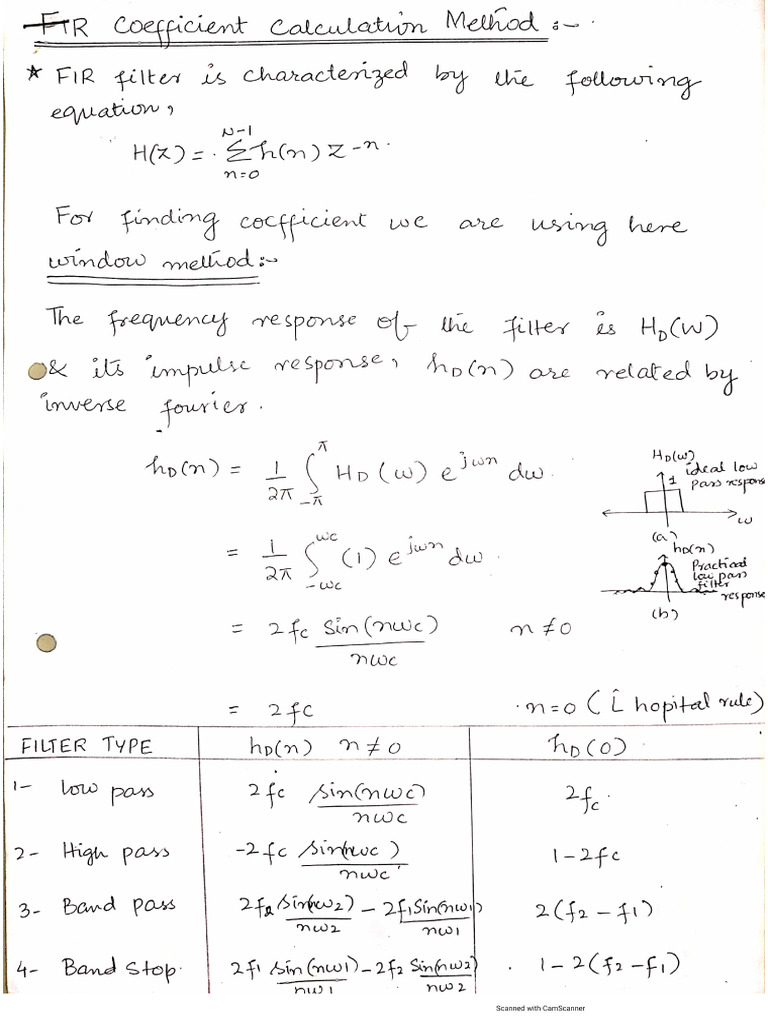 FIR Coefficient Calculation Method :-
* FIR filter is characterized by the following
equation,
H(z) = N-1 Σ n=0 h(n) z^-n.
For finding cocfficient we are using here
window method:-
The frequency response of the filter is H_D(W)
& its impulse response, h_D(n) are related by
inverse fourier.
h_D(n) = 1/2π ∫_-π^π H_D(ω) e^jωn dω.
= 1/2π ∫_-ωc^ωc (1) e^jωn dω.
= 2fc sin(nωc)/nωc n≠0
= 2fc n=0 (L̂ hopital rule)
H_D(ω)
ideal low
1 pass respons
ω
(a)
h_D(n)
Practical
low pass
filter
response
(b)
FILTER TYPE h_D(n) n≠0 h_D(0)
1- low pass 2fc sin(nωc)/nωc 2fc
2- High pass -2fc sin(nωc)/nωc 1-2fc
3- Band pass 2f2 sin(nω2)/nω2 - 2f1 Sin(nω1)/nω1 2(f2-f1)
4- Band Stop 2f1 sin(nω1)/nω1 - 2f2 Sin(nω2)/nω2 1-2(f2-f1)
Scanned with CamScanner